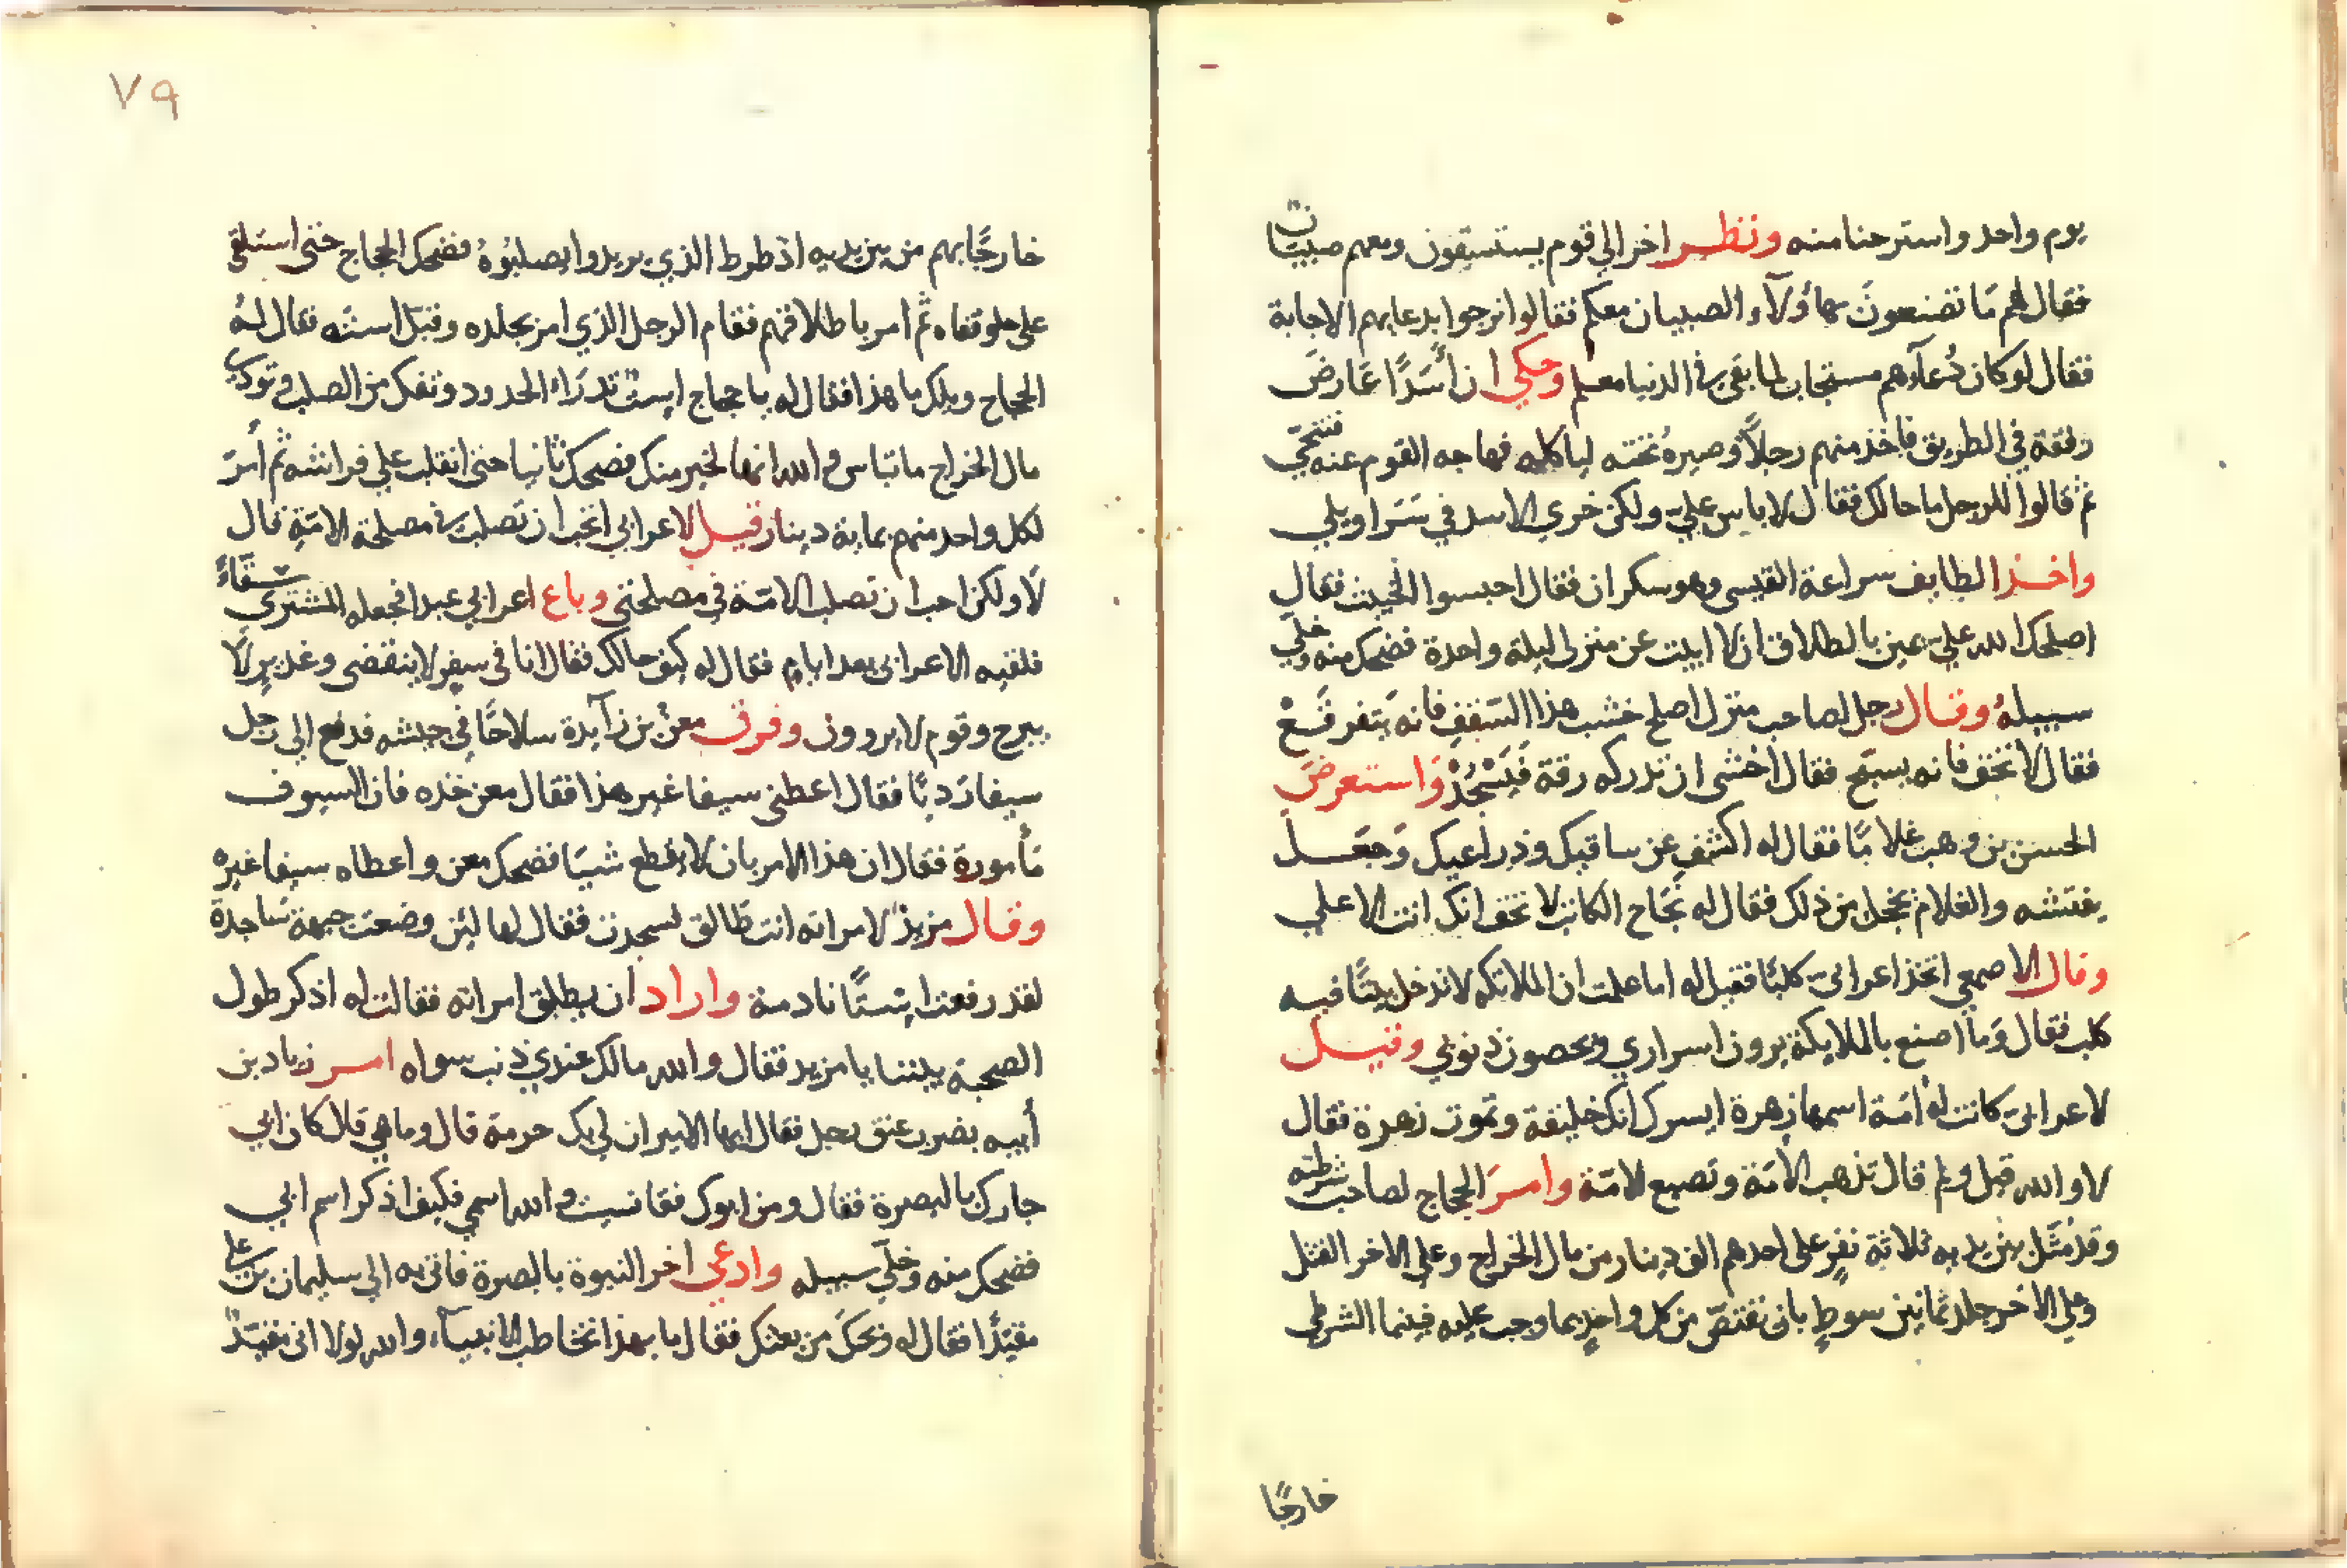 يوم واحد واسترحنا منه ونظر اخر الي قوم يستسقون ومعهم صبيان
فقال لهم مَا تصنعونَ بهاؤلآء الصبيان معكم فقالوا نرجوا بدعايهم الاجابة
فقال لو كان دُعآؤهم مستجاب لما بقى في الدنيا معلم وحكي ان أَسَدًا عَارضَ
رفقة في الطريق فاخذ منهم رجلاً وصيره تحته لياكله فهاجه القوم عنه فتنحّي
ثم قالوا للرجل ما حالك فقال لا باس عليّ ولكن خري الاسد في سَرَاويلي
واخذ الطايف سراعة القيسى وهو سكران فقال احبسوا الخبيث فقال
اصلحك الله عليّ يمين بالطلاق ان لا ابيت عن منزلى ليلة واحدة فضحك منه وخلي
سبيلهُ وقال رجل لصاحب منزل اصلح خشب هذا السّقفِ فانه يَتفرقَعْ
فقال لا تخف فانه يسبّح فقال اخشى ان تدركه رقة فَيَسْجُدْ وَاستعرضَ
الحسن بن وهب غلامًا فقال له اكشف عن ساقيك وذراعيك وَجَعَل
يفتشه والغلام يخجل من ذلك فقال له نجَاح الكاتب لا تخف انك انت الاعلي
وقال الاصمعي اتخذ اعرابىّ كلبًا فقيل له اما علمت ان الملائكه لا تدخل بيتًا فيه
كلب فقال وَما اصنع بالملايكة يرون اسراري ويحصون ذنوبي وقيل
لاعرابىّ كانت لهُ أمَة اسمها زهرة ايسرك انك خليفة وتموت زهرة فقال
لا والله قيل ولم قال تذهب الاَمَة وتضيع الامّة وامرَ الحجاج لصاحب شرطته
وقد مَثَل بين يديه ثلاثة نفرٍ على احدهم الف دينار من مال الخراج وعلي الاخر القتل
وعلي الاخر جلد ثمانين سوطٍ بان نقتصّ من كل واحدٍ بما وجب عليه فبينما الشرطى
خارجًا
٧٩
خارجًا بهم من بين يديه اذ ظرط الذي يريدوا يصلبُوهُ فضحك الحجاج حتى استلقى
على حلو قفاه ثم امر باطلاقهم فقام الرجل الذي امر بجلده وقبّل استَه فقال لهُ
الحجاج ويلك ما هذا فقال له يا حجاج است تدرَاء الحدود وتفك من الصلب وتودي
مال الخراج ما تباس والله انها لخير منك فضحك ثانيا حتى انقلب علي فراشه ثم أمرَ
لكل واحد منهم بماية دينار قيل لاعرابي اتحب ان تصلب في مصلحة الامّةِ قال
لا ولكن احب ان تصلب الامّة في مصلحتى وباع اعرابي عبدا فجعله المشترى سقّاءً
فلقيه الاعرابى بعد ايام فقال له كيف حالك فقال انا فى سفرٍ لا ينقضى وغديرٍ لا
يبرح وقوم لا يروون وفرق معنْ بن زآيدة سلاحًا في جيشه فدفع الى رجل
سيفا رَديًا فقال اعطنى سيفا غير هذا فقال معن خذه فان السيوف
مَأمورة فقال ان هذا الامر بان لا يقطع شيئا فضحك معن واعطاه سيفا غيره
وقال مزيد لامراته انت طالق لسجدت فقال لها لئن وضعت جبهة سَاجدة
لقد رفعت اِستًا نادمة واراد ان يطلق امراته فقالت له اذكر طول
الصحبة بيننا يا مزيد فقال والله مالك عندي ذنب سواه امر زياد بن
أبيه بضرب عنق رجل فقال ايها الامير ان لي بك حرمة قال وما هي قال كان ابي
جارك بالبصرة فقال ومن ابوك فقا نسيت والله اسمي فكيف اذكر اسم ابي
فضحك منه وخلّي سبيله وادعي اخر النبوة بالبصرة فاتى به الي سليمان بن علي
مقيّدًا فقال له ويحكَ من بعثك فقال ما بهذا تخاطب الانبيآء والله لولا انى مقيّدٌ